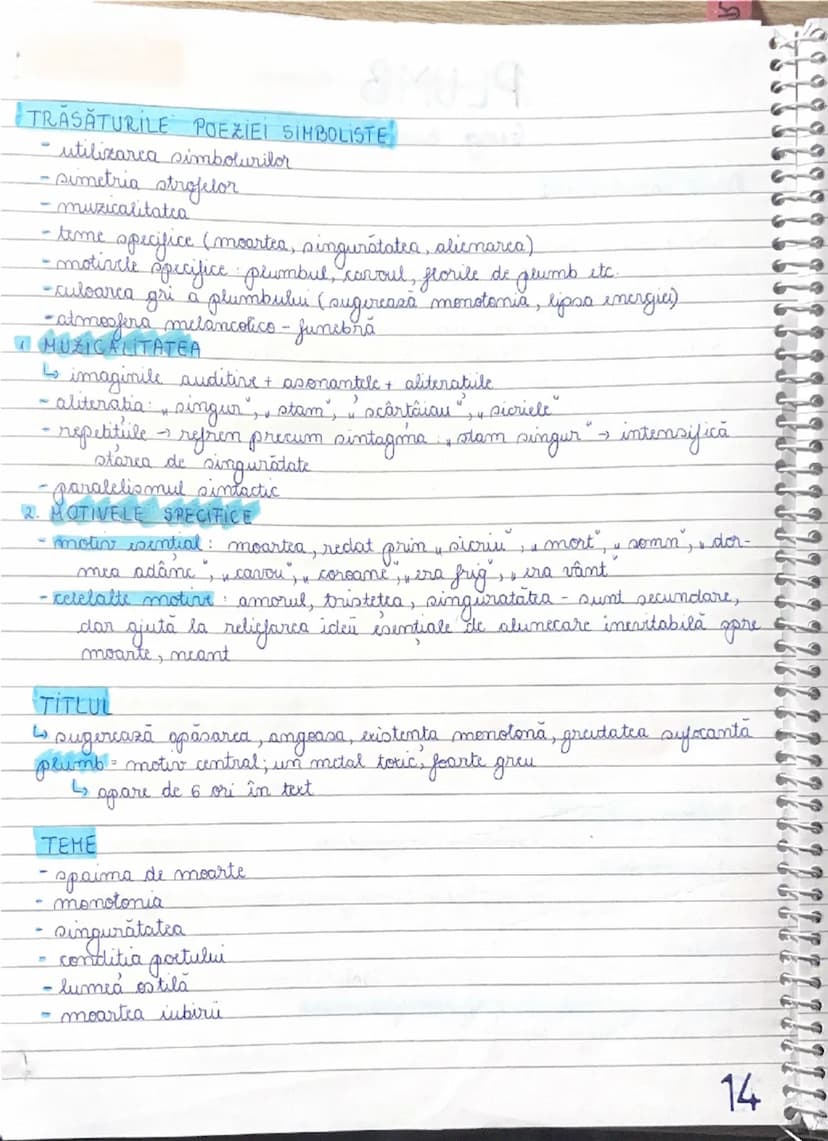 TRĂSĂTURILE POEZIEI SIMBOLISTE
- utilizarea simbolurilor
- simetria strofelor
- muzicalitatea
- teme specifice (moartea, singurătatea, alienarea)
- motivele specifice: plumbul, cavoul, florile de plumb etc.
- culoarea gri a plumbului (sugerează monotonia, lipsa energiei)
- atmosfera melancolico - funebră
1 MUZICALITATEA
↳ imaginile auditive + asonantele + aliteratiile
- aliteratia: „singur”, „stam”, „scârtâiau”, „sicriele”
- repetitiile → refren precum sintagma: „stam singur” → intensifică
starea de singurătate
- paralelismul sintactic
2. MOTIVELE SPECIFICE
- motiv esential: moartea, redat prin „sicriu”, „mort”, „somn”, „dor-
mea adânc”, „cavou”, „coroane”, „era frig”, „era vânt”
- celelalte motive: amorul, tristetea, singuratătea - sunt secundare,
dar ajută la reliefarea ideii esentiale de alunecare inevitabilă spre
moarte, neant
TITLUL
↳ sugerează apăsarea, angoasa, existenta monotonă, greutatea sufocantă
plumb = motiv central; un metal toxic, foarte greu
↳ apare de 6 ori în text
TEME
- spaima de moarte
- monotonia
- singurătatea
- conditia poetului
- lumea ostilă
- moartea iubirii
14